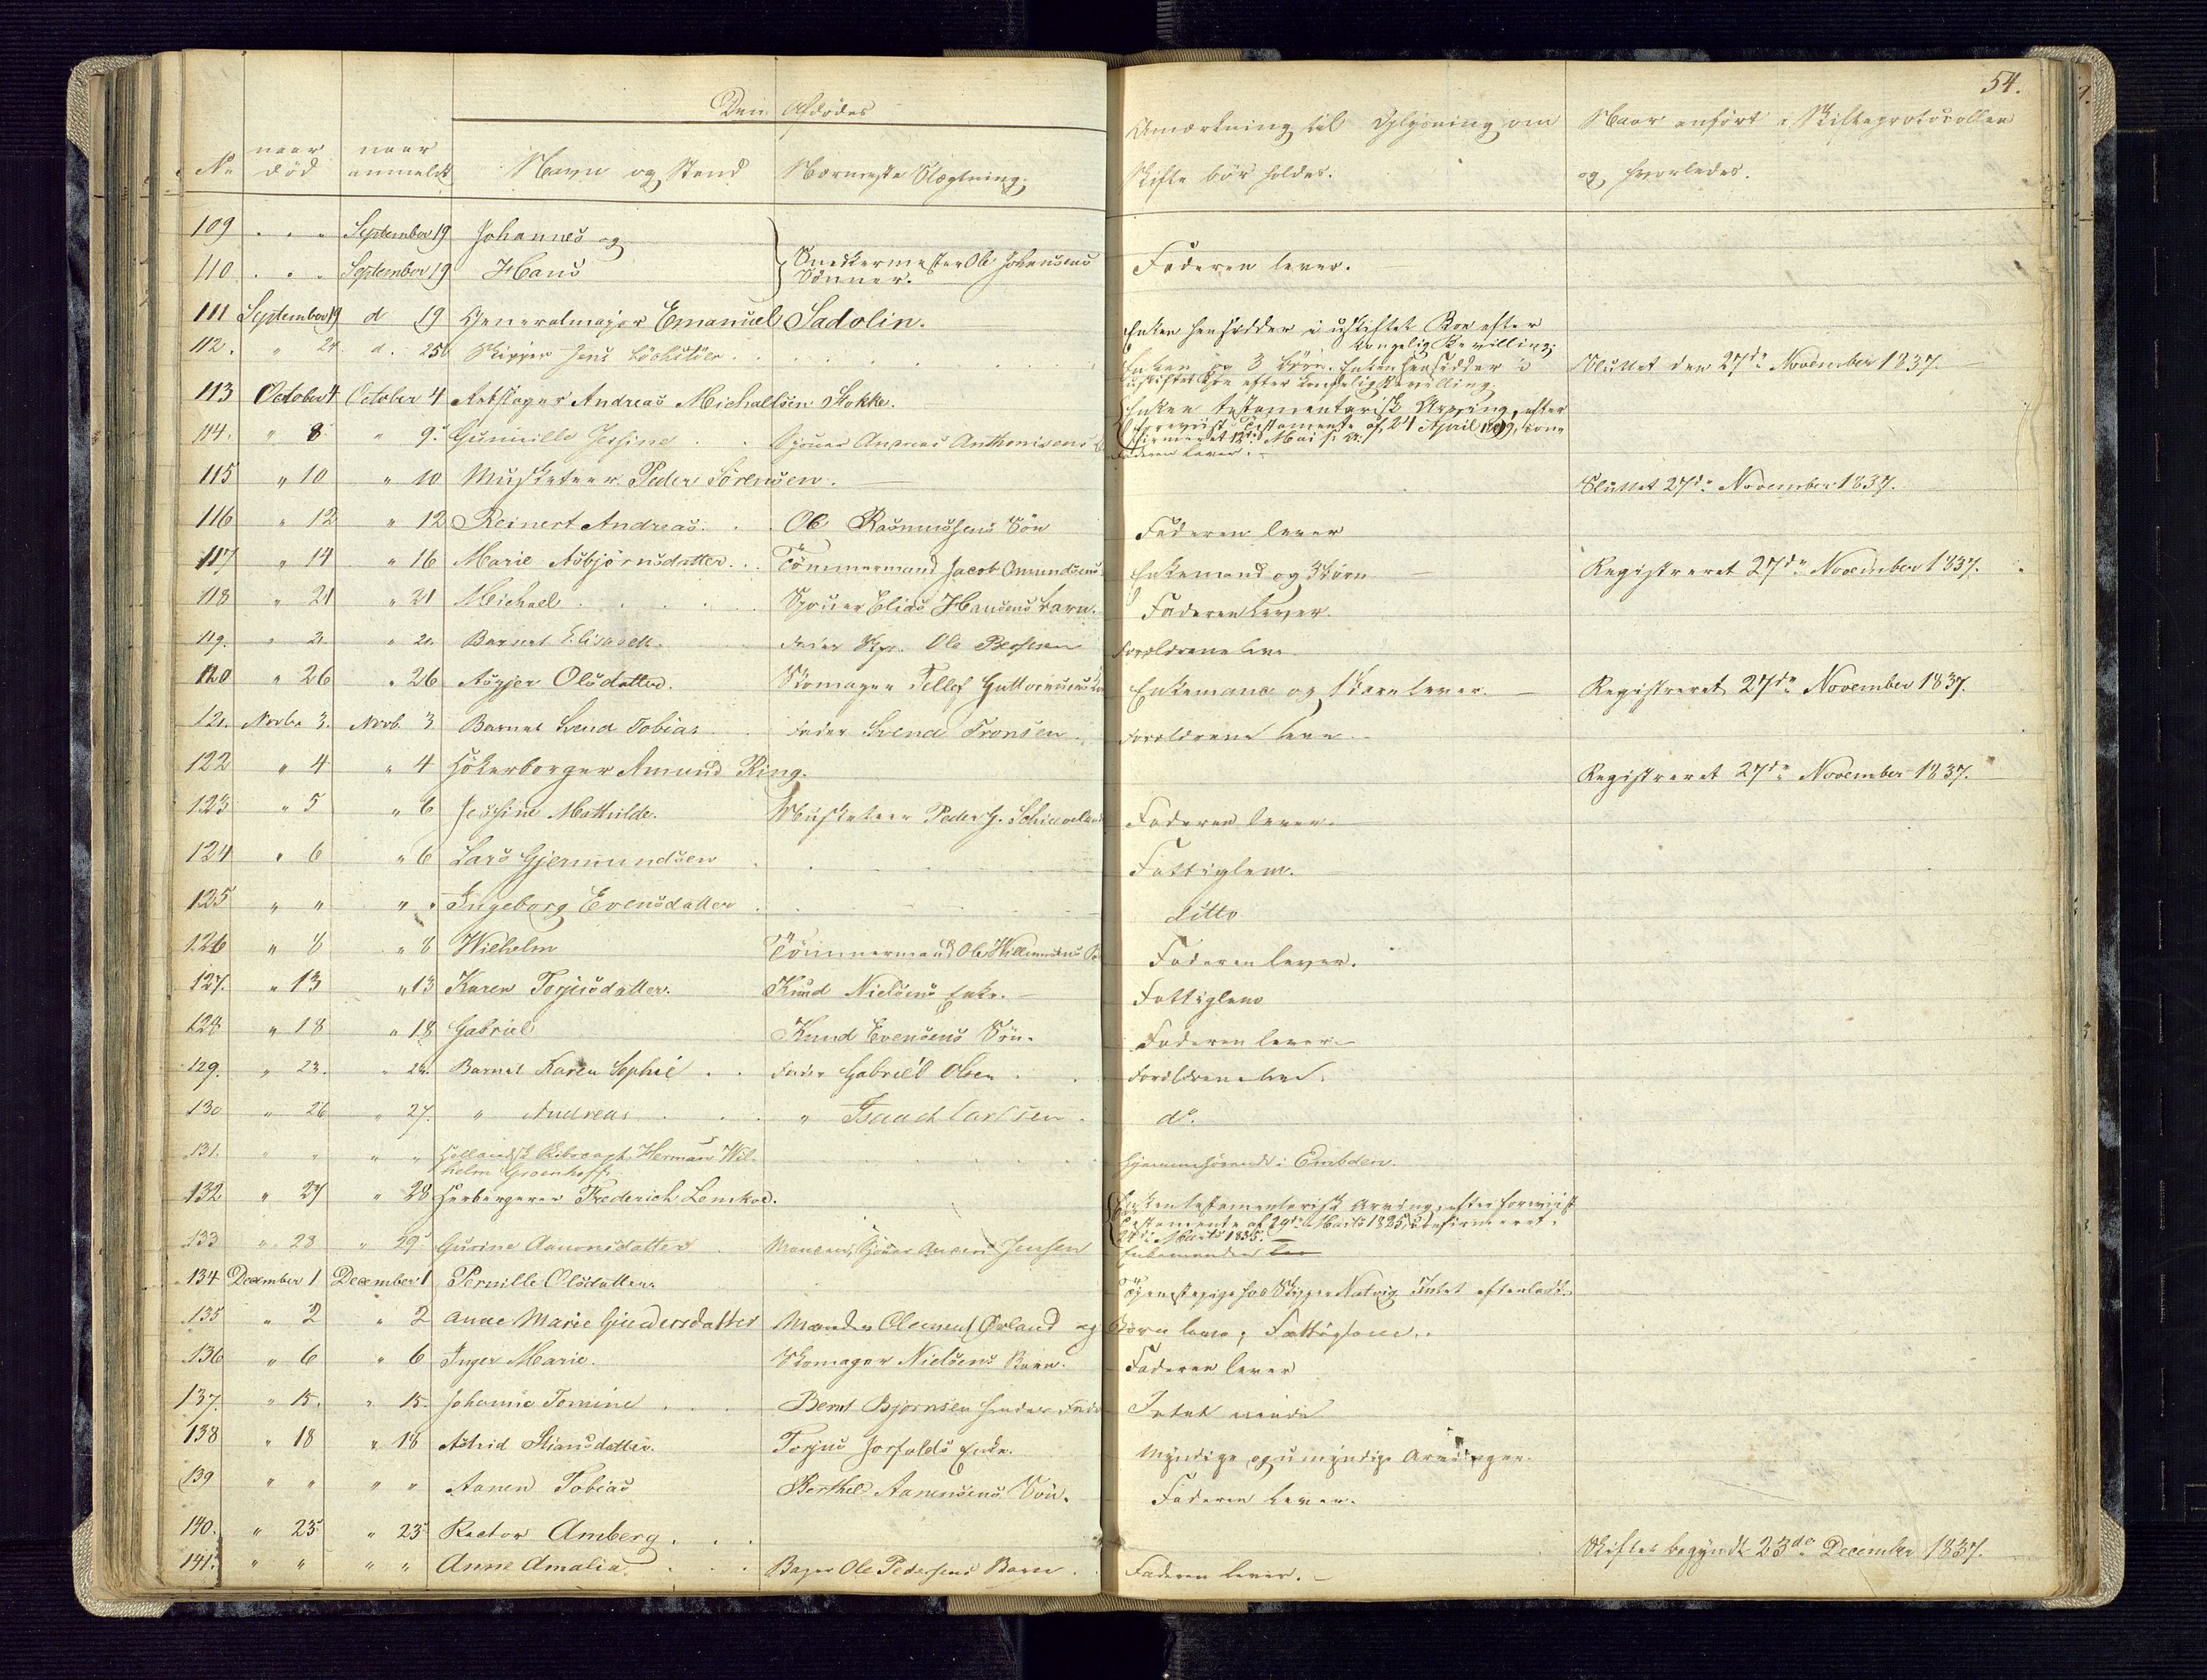 54.
Den Afdødes
No naar død naar anmeldt Navn og Stand Nærmeste Slægtning. Anmærkning til Oplysning om Naar anført i Skifteprotocollen
Skifte bør holdes. og hvorledes.
109 " " " September 19 Johannes og
110 " " " September 19 Hans Snedkermester Ole Johansens Sønner. Faderen lever.
111 September 19 d 19 Generalmajor Emanuel Sadolin. Enken hensidder i uskiftet Boe efter kongelig Bevilling.
112. " 24. d. 25 Skipper Jens Enken og 3 Børn. Enken hensidder i uskiftet Boe efter kongelig Bevilling. Sluttet den 27de November 1837.
113 October 4 October 4 Andreas Michaelsen Stokke. Enken testamentarisk Arving, efter foreviist Testamente af 24 April confirmeret 12te Mai s. A.
114. " 8. " 9. Gunnille Jessine Andreas Anthonisens Faderen lever.
115 " 10 " 10 Musketeer Peder Sørensen. Sluttet 27de November 1837.
116 " 12 " 12 Reinert Andreas. Ole Rasmussens Søn Faderen lever
117 " 14 " 16 Marie Asbjørnsdatter. Tømmermand Jacob Omundsens Enkemand og Børn Registreret 27de November 1837.
118 " 21 " 21 Michael Elias Hansens Barn. Faderen lever.
119. " 2. " 21. Barnet Elisabeth. Fader Ole Forældrene leve
120 " 26 " 26 Asgjer Olsdatter. Skomager Tellef Guttormsens Enkemand og 1 Barn lever. Registreret 27de November 1837.
121. Novbr 3. Novb. 3 Barnet Svend Tobias Fader Svend Tronsen. Forældrene leve.
122 " 4 " 4 Høkerborger Amund Ring. Registreret 27de November 1837.
123 " 5 " 6 Josefine Mathilde. Musketeer Peder G. Faderen lever.
124 " 6 " 6 Lars Gjermundsen Fattiglem.
125 " " " " Ingeborg Evensdatter ditto
126 " 8 " 8 Wilhelm Tømmermand Ole Willumsens Faderen lever.
127. " 13 " 13 Karen Torjusdatter. Knud Nielsens Enke. Fattiglem
128 " 18 " 18 Gabriel Knud Evensens Søn. Faderen lever.
129. " 23. " 24. Barnet Karen Sophie Fader Gabriel Olsen Forældrene leve.
130 " 26 " 27. " Andreas " Isaach Carlsen do.
131. " " " " Hollandsk Herman Wilhelm Groenhoff. hjemmehørende i Embden.
132 " 27 " 28 Herbergerer Frederich Lemkoe. Enken testamentarisk Arving, efter foreviist Testamente af 29de Marts 1825, confirmeret Marts 1835.
133 " 28 " 29 Gurine Aanonsdatter Manden, Anders Jensen Enkemanden
134 December 1 December 1 Pernille Olsdatter. Tjenestepige hos Skipper Natvig. Intet efterladt.
135 " 2 " 2 Anne Marie Gundersdatter Manden Clement Ørland og Børn leve; Fattiglem.
136 " 6 " 6 Inger Marie. Skomager Nielsens Barn. Faderen lever
137. " 15. " 15. Johanne Tomine Bernt Bjørnsen hendes Fader Intet eiende
138 " 18 " 18 Astrid Stiansdatter. Torjus Enke. Myndige og umyndige Arvinger.
139 " " " " Aanen Tobias Berthel Aanensens Søn. Faderen lever.
140. " 23 " 23 Rector Amberg. Skiftet begyndt 23de December 1837.
141. " " " " Anne Amalia. Bager Ole Pedersens Barn. Faderen lever.